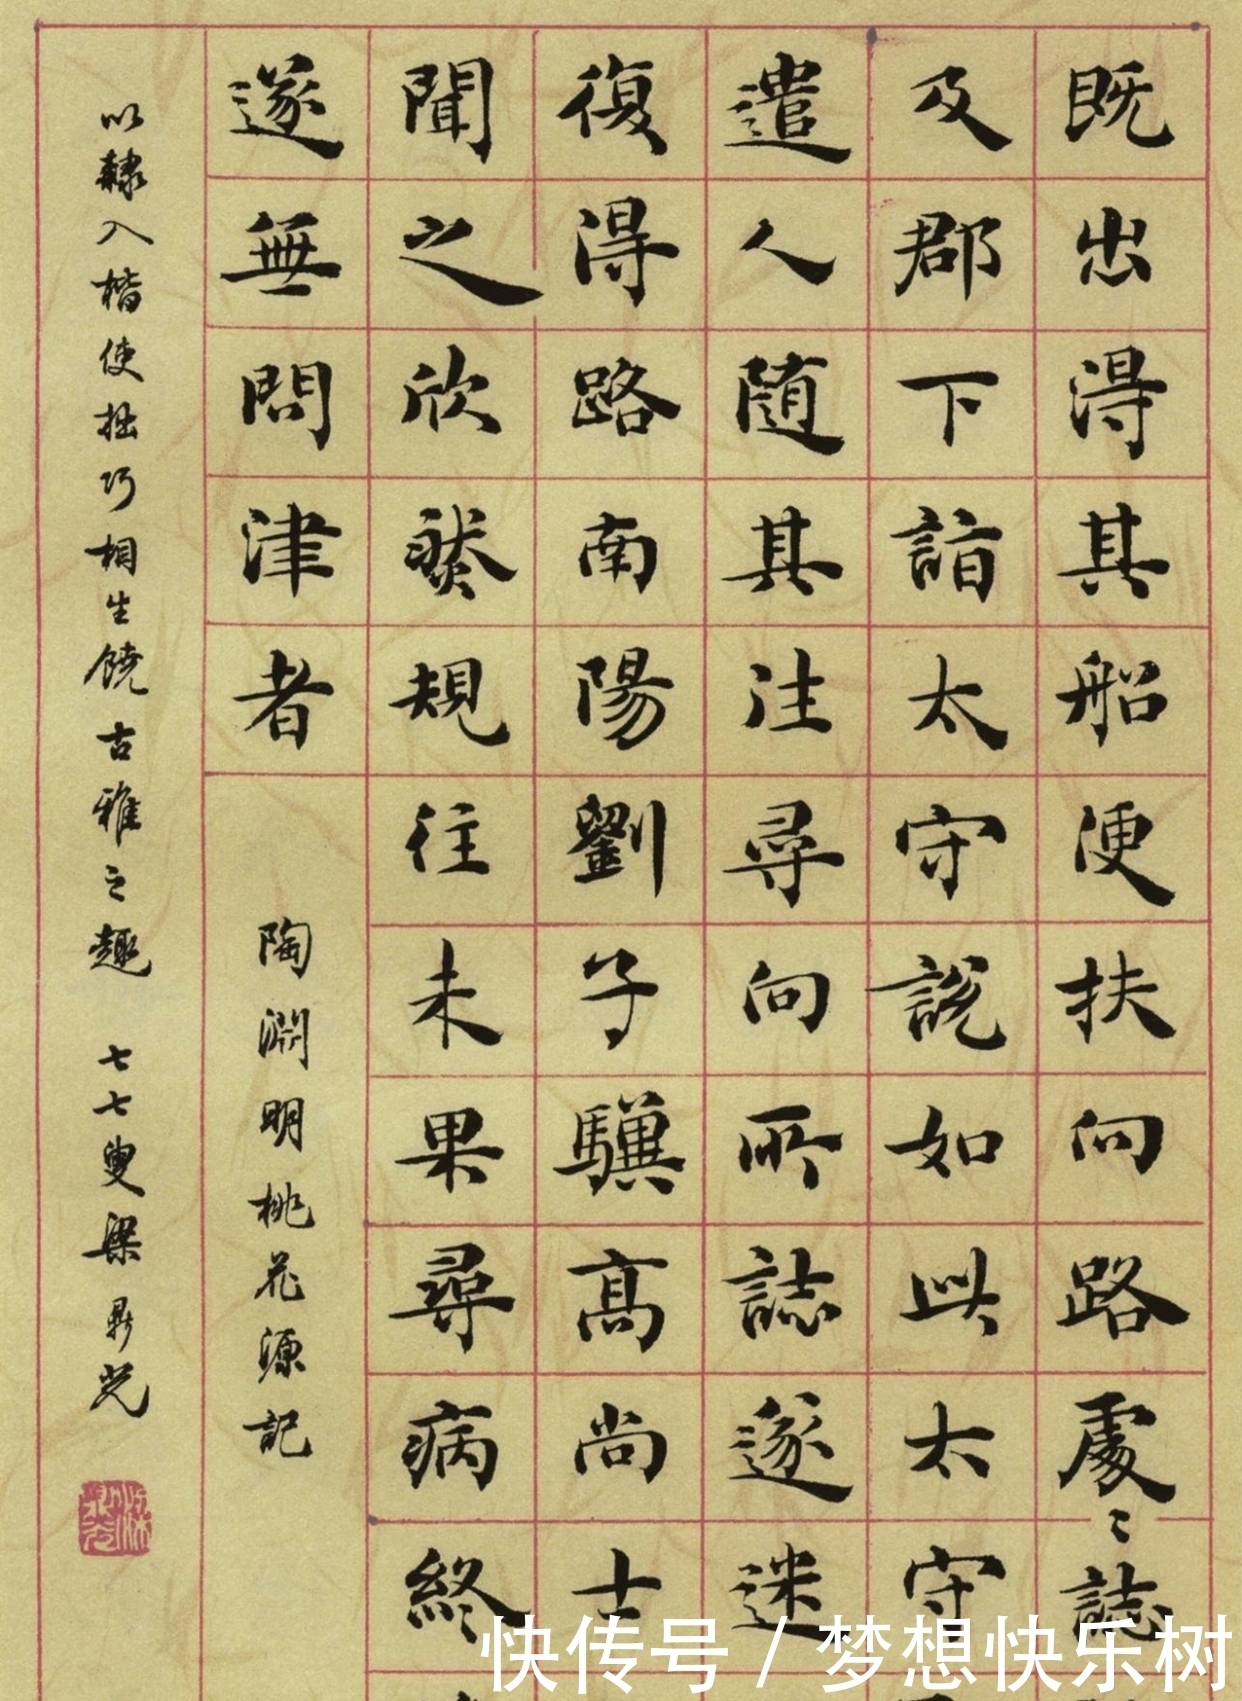 既出得其船便扶向路處〻誌
及郡下詣太守說如此太守
遣人随其往尋向所誌遂迷
復得路南陽劉子驥高尚士
聞之欣然規往未果尋病終
遂無問津者
陶淵明桃花源記
以隸入楷使拙巧相生饒古雅之趣 七七叟梁鼎光
快传号/梦想快乐树